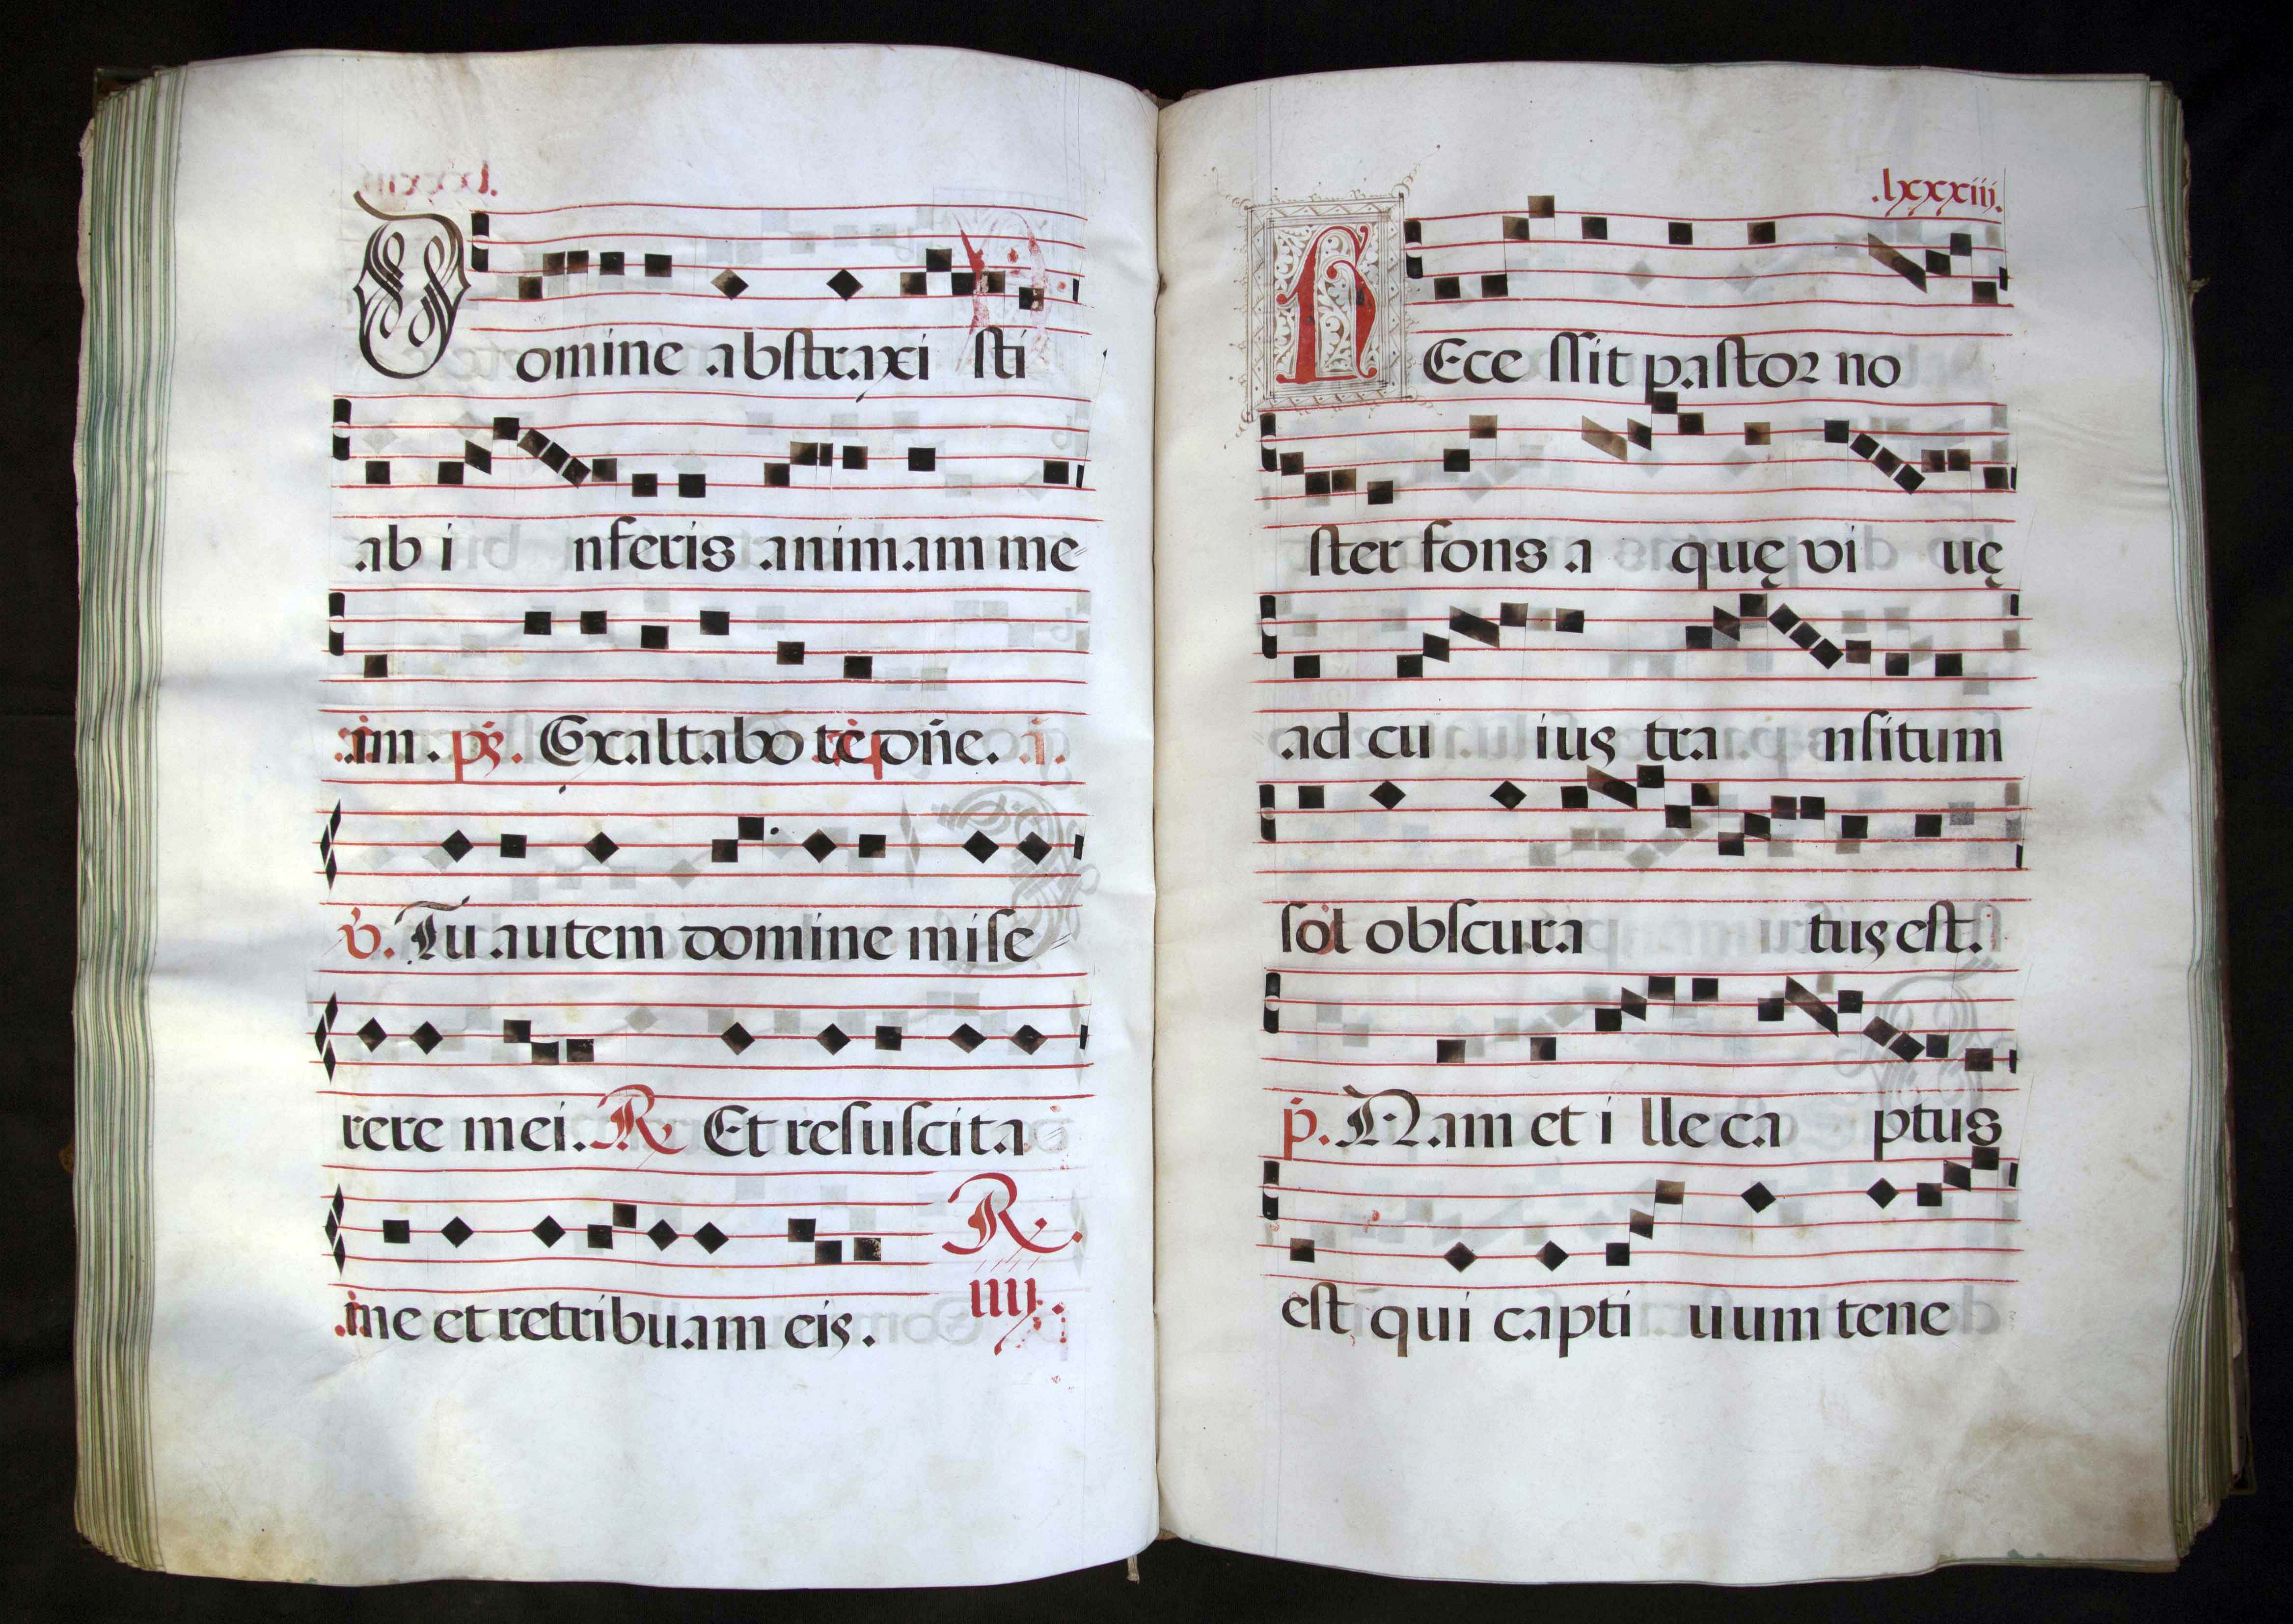 Domine abstraxi sti
ab i nferis animam me
am. ps. Exaltabo te dñe. i.
v. Tu autem domine mise
rere mei. R. Et resuscita
me et retribuam eis.
R.
iiij.
.lxxxiij.
REce ssit pastor no
ster fons a quę vi uę
ad cu ius tra nsitum
sol obscura tus est.
p. Nam et i lle ca ptus
est qui capti uum tene